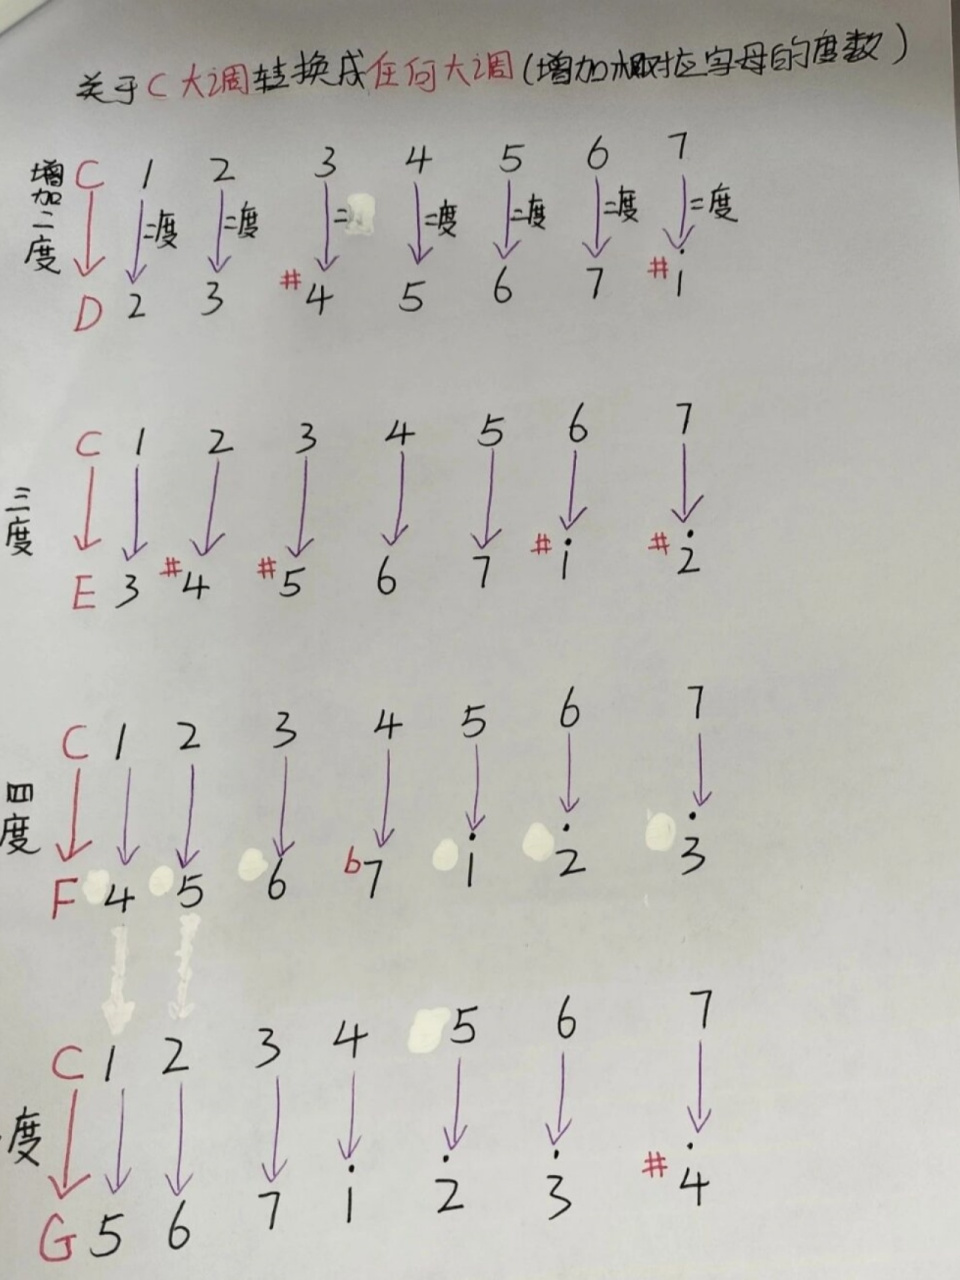 关于C大调转换成任何大调(增加相应字母的度数)
增加二度 C 1 2 3 4 5 6 7
二度 二度 二 二度 二度 二度 二度
D 2 3 #4 5 6 7 #i
三度 C 1 2 3 4 5 6 7
E 3 #4 #5 6 7 #i #2̇
四度 C 1 2 3 4 5 6 7
F 4 5 6 b7 i 2̇ 3̇
度 C 1 2 3 4 5 6 7
G 5 6 7 i 2̇ 3̇ #4̇